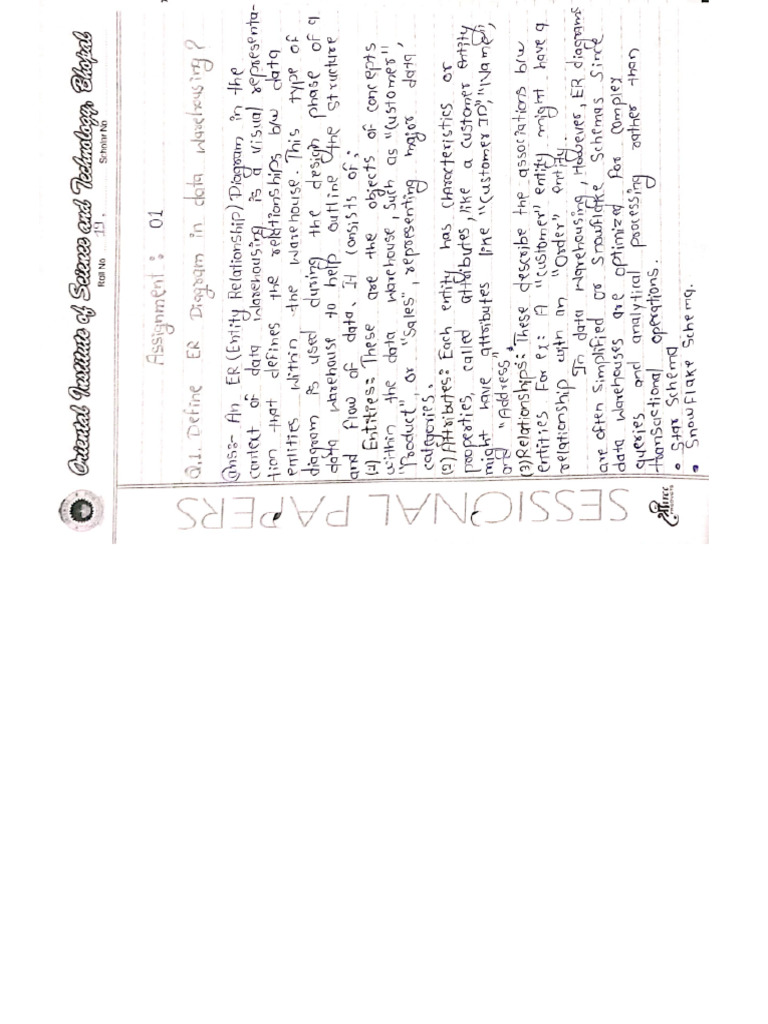 Oriental Institute of Science and Technology, Bhopal
Roll No. 19. Scholar No.
Assignment: 01
Q.1. Define ER Diagram in data warehousing?
Ans:- An ER (Entity Relationship) Diagram in the
context of data warehousing is a visual representa-
tion that defines the relationships b/w data
entities within the warehouse. This type of
diagram is used during the design phase of a
data warehouse to help outline the structure
and flow of data. It consists of:
Entities: These are the objects of concepts
within the data warehouse, such as "Customer"
"Product", or "Sales", representing major data,
categories.
(2) Attributes: Each entity has characteristics or
properties, called attributes, like a customer entity
might have attributes like "Customer ID", "Name",
and "Address".
(3) Relationships: These describe the associations b/w
entities For ex: A "customer" entity might have a
relationship with an "Order" entity.
In data warehousing, However, ER diagrams
are often simplified or snowflake schemas since
data warehouses are optimized for complex
queries and analytical processing rather than
transactional operations.
• Star Schema
• Snowflake Schema.
SESSIONAL PAPERS